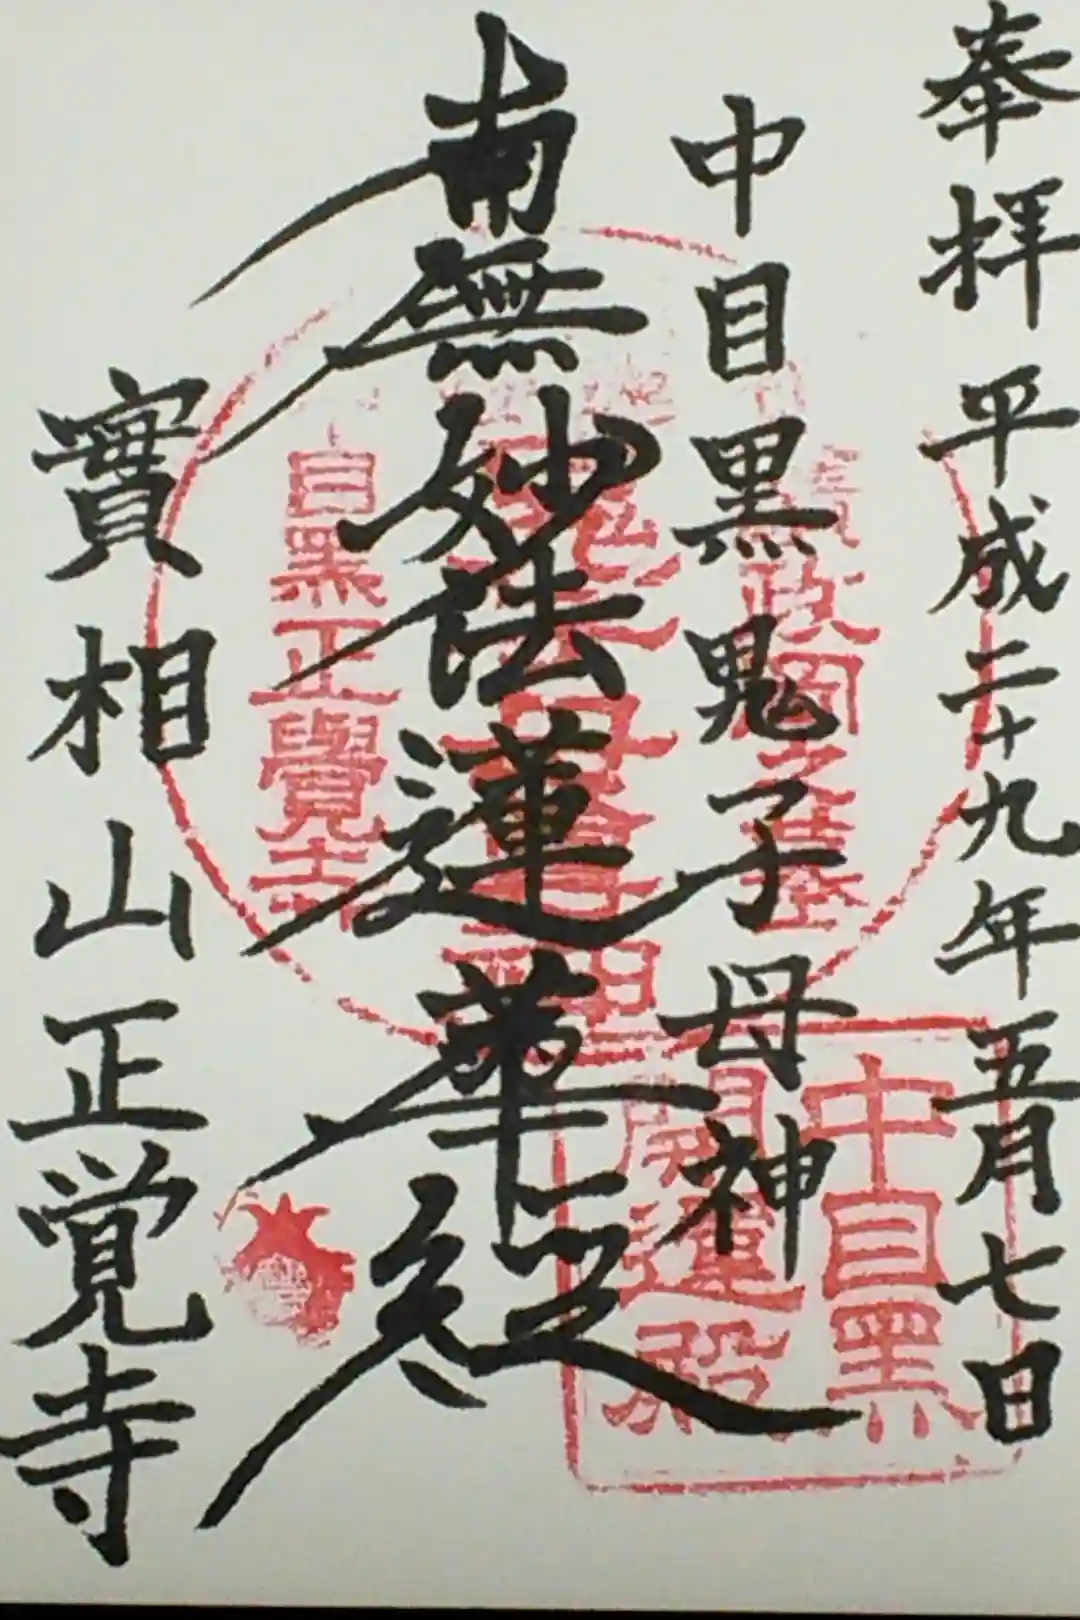 奉拝 平成二十九年五月七日
中目黒鬼子母神
南無妙法蓮華経
實相山正覚寺
目黒正覺寺
中目黒
開運殿